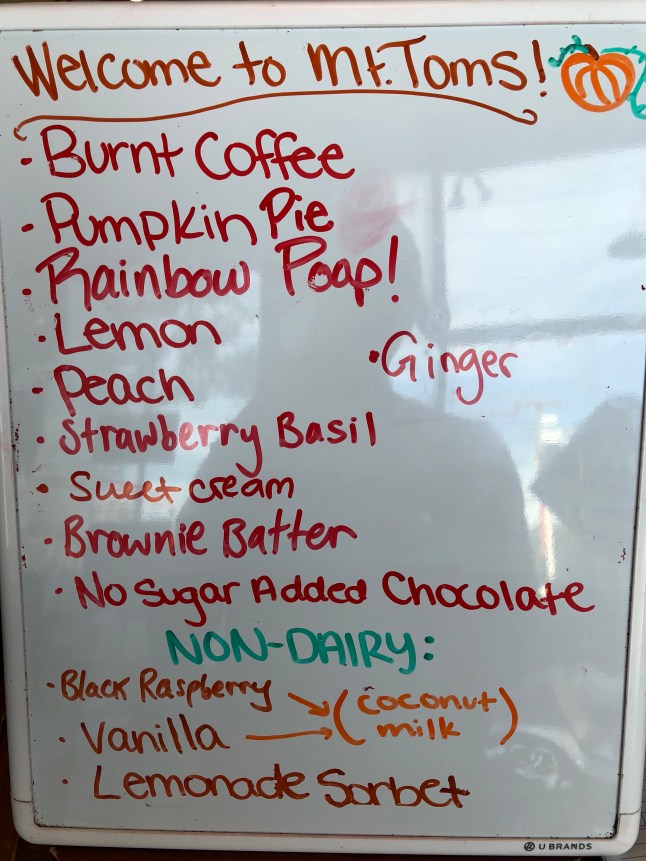 Welcome to Mt. Toms!
• Burnt Coffee
• Pumpkin Pie
• Rainbow Poap!
• Lemon
• Ginger
• Peach
• Strawberry Basil
• Sweet cream
• Brownie Batter
• No Sugar Added Chocolate
NON-DAIRY:
• Black Raspberry
(coconut milk)
• Vanilla
• Lemonade Sorbet
U BRANDS